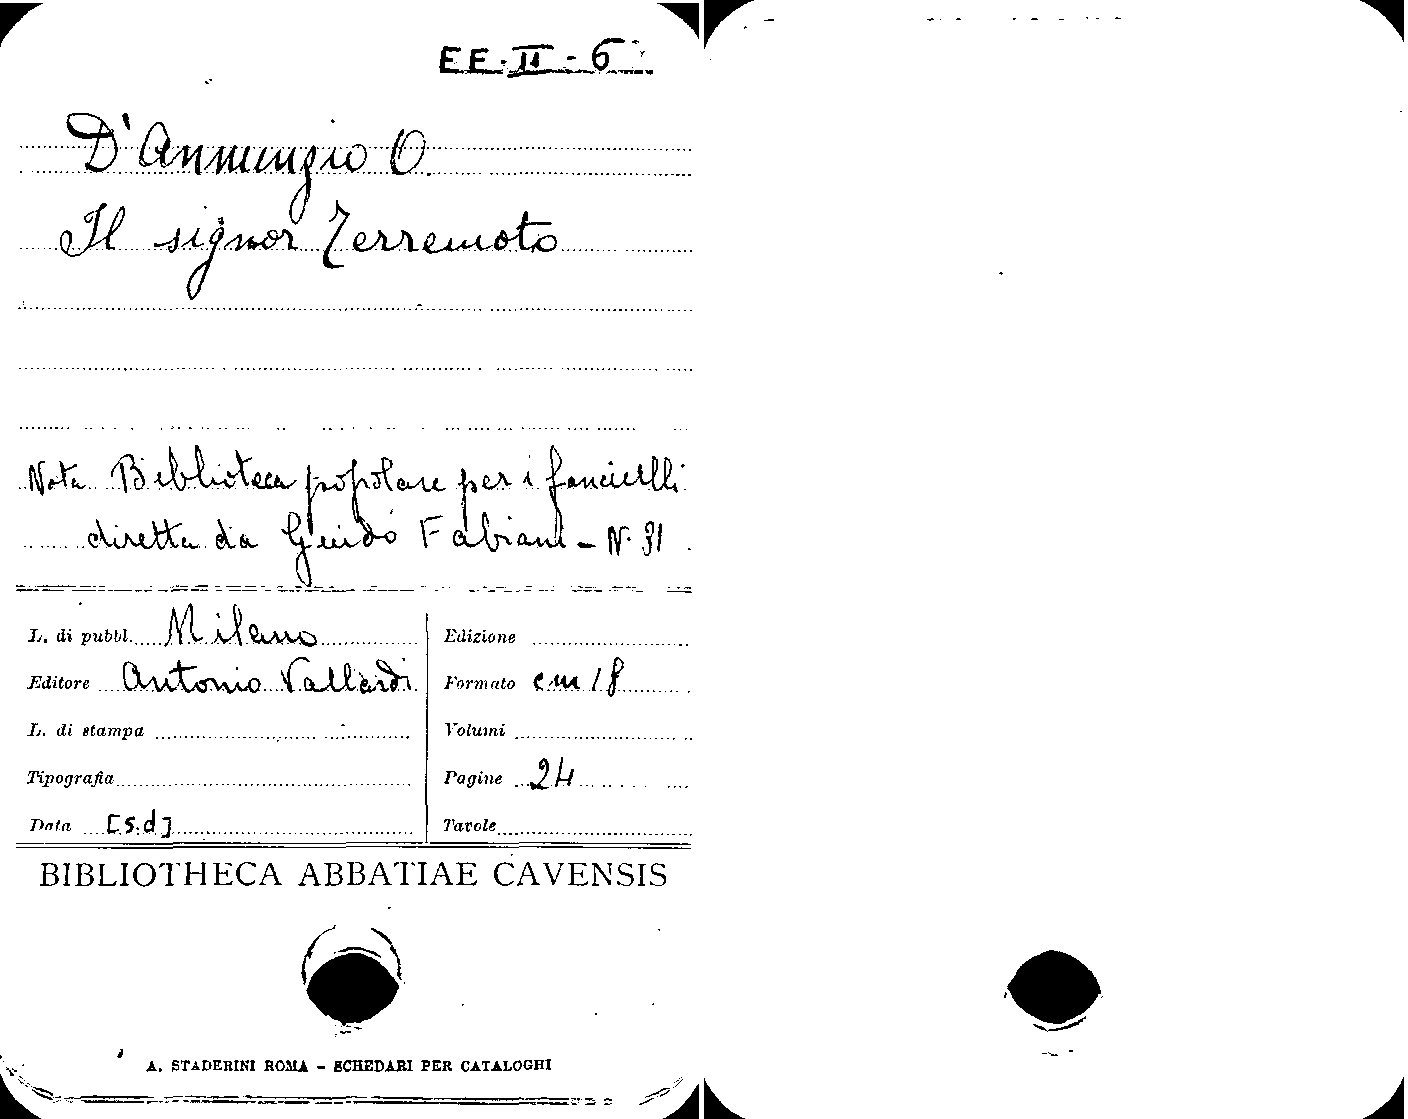 EE-II-6
D'Annunzio O.
Il signor Terremoto
Nota Biblioteca popolare per i fanciulli
diretta da Guido Fabiani - N. 31
L. di pubbl. Milano
Editore Antonio Vallardi
L. di stampa
Tipografia
Data [s.d]
Edizione
Formato cm 18
Volumi
Pagine 24
Tavole
BIBLIOTHECA ABBATIAE CAVENSIS
A. STADERINI ROMA - SCHEDARI PER CATALOGHI